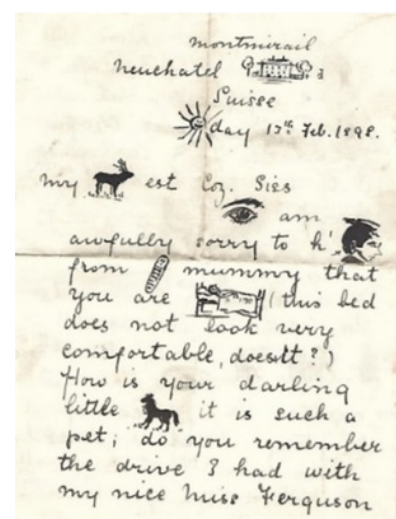 Montmirail
Neuchatel
Suisse
day 13th Feb. 1898.
My est Coz. Siss
am
awfully sorry to h'
from mummy that
you are (this bed
does not look very
comfortable, doesn't?)
How is your darling
little it is such a
pet; do you remember
the drive I had with
my nice Miss Ferguson